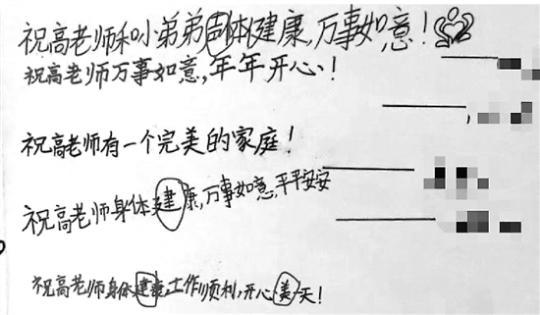 祝高老师和小弟弟固体健康,万事如意!
祝高老师万事如意,年年开心!
祝高老师有一个完美的家庭!
祝高老师身体建康,万事如意,平平安安
祝高老师身体建康,工作顺利,开心美一天!